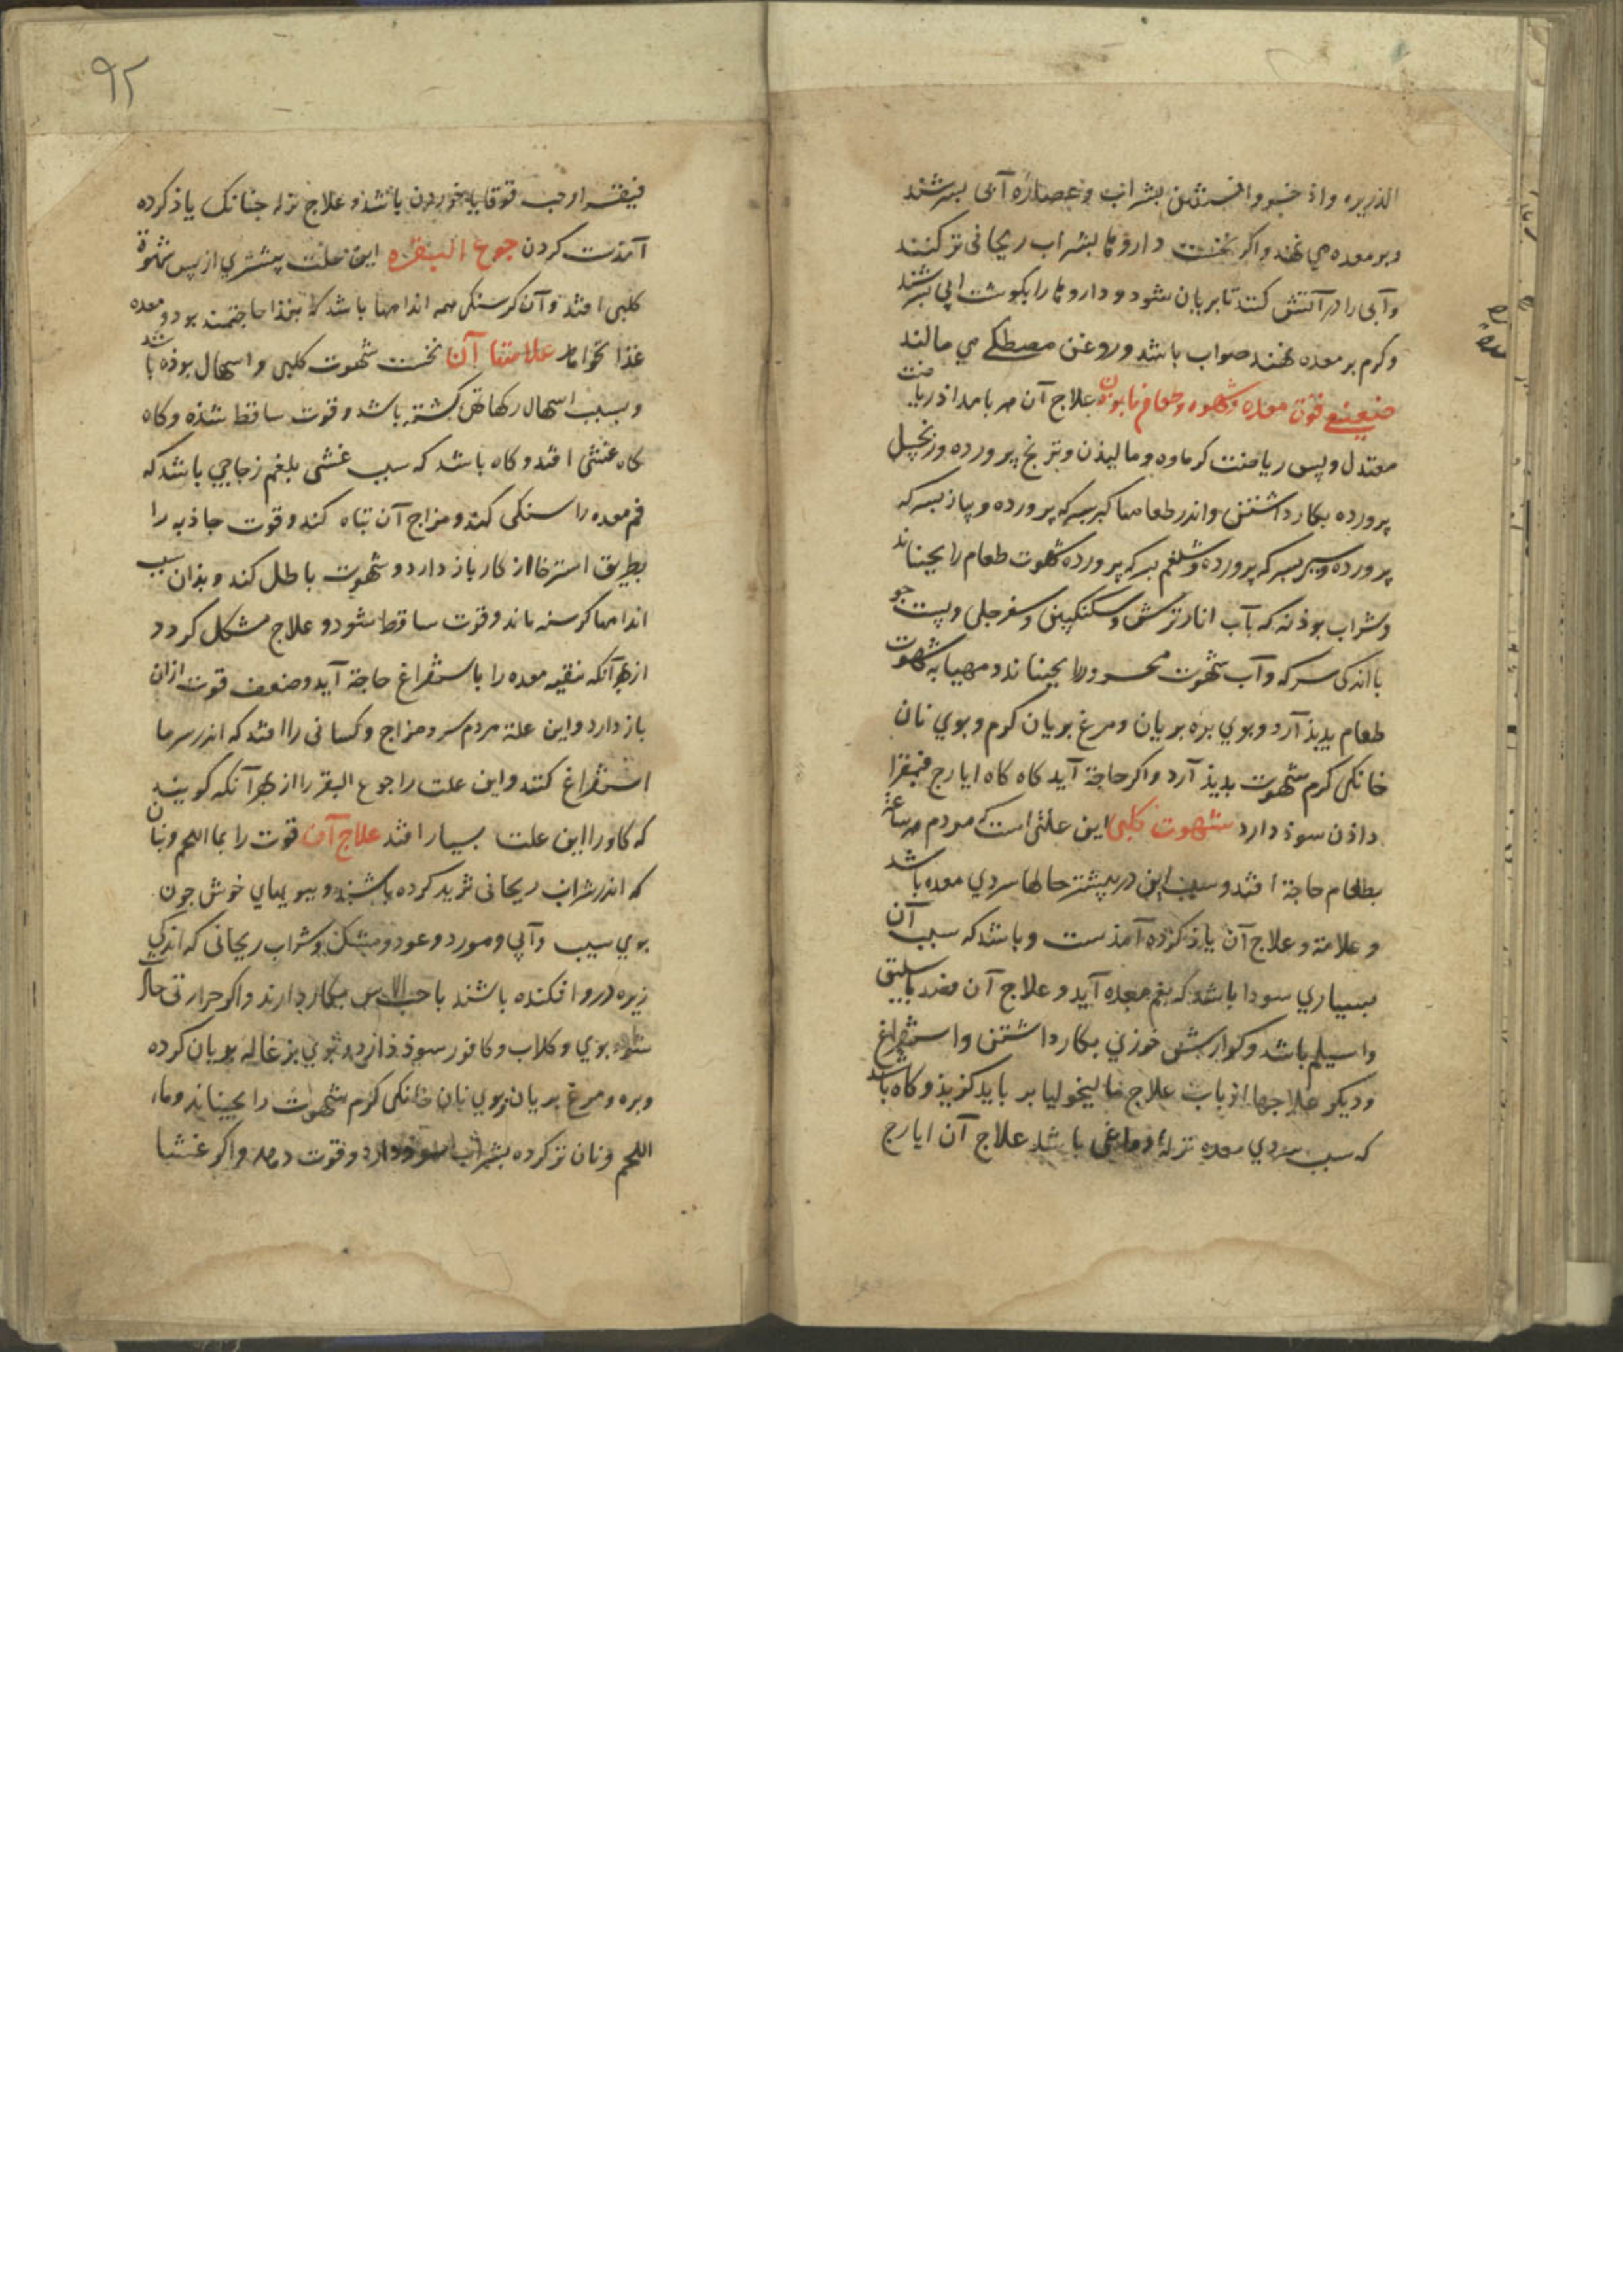 الذریره واذخر وافسنتین بشراب وعصاره آبی بسرشند
وبر معده می نهند واکر نخست داروها بشراب ریحانی تر کنند
وآبی را در آتش کنند تا بریان شود و داروها را بکوشت آبی بسرشند
وکرم بر معده نهند صواب باشد وروغن مصطکی می مالند
ضعیفی قوت معده وشهوه وطعام نابودن علاج آن هر بامداد ریاضت
معتدل وپس ریاضت کرماوه ومالیذن وترنج پرورده وزنجبیل
پرورده بکار داشتن واندر طعامها کبر بسرکه پرورده وپیاز بسرکه
پرورده وسیر بسرکه پرورده وشلغم بسرکه پرورده شهوت طعام را بجنباند
وشراب بوذنه که بآب انار ترش وسکنکبین وسفرجلی وپست جو
با اندکی سرکه وآب شهوت محرور را بجنباند ومهیا به شهوت
طعام بدیذ آرد وبوی بره بریان ومرغ بریان کرم وبوی نان
خانکی کرم شهوت بدیذ آرد واکر حاجة آید کاه کاه ایارج فیقرا
داذن سوذ دارد شهوت کلبی این علتی است که مردم هر ساعة
بطعام حاجة افتد وسبب این در بیشتر حالها سردی معده باشد
وعلامة وعلاج آن یاذ کرده آمذست وباشد که سبب آن
بسیاری سودا باشد که بفم معده آید وعلاج آن فصد باسلیق
واسیلم باشد وکوارش خوزی بکار داشتن واستفراغ
ودیکر علاجها از باب علاج مالیخولیا بر باید کزیذ وکاه باشد
که سبب سردی معده نزله دماغی باشد علاج آن ایارج
۹۲
فیقرا وحب قوقایا خوردن باشذ وعلاج نزله جنانک یاذ کرده
آمذست کردن جوع البقره این علت بیشتری از پس شهوة
کلبی افتذ وآن کرسنکی همه اندامها باشد که بغذا حاجتمند بود ومعده
غذا نخواهد علامتها آن نخست شهوت کلبی واسهال بوذه باشد
وبسبب اسهال رکها تهی کشته باشد وقوت ساقط شذه وکاه
کاه غشی افتد وکاه باشد که سبب غشی بلغم زجاجی باشد که
فم معده را سنکی کند ومزاج آن تباه کند وقوت جاذبه را
بطریق استرخا از کار باز دارد وشهوت باطل کند وبذان سبب
اندامها کرسنه ماند وقوت ساقط شود وعلاج مشکل کردد
از بهر آنکه تنقیه معده را باستفراغ حاجة آید وضعف قوت ازان
باز دارد واین علة مردم سرد مزاج وکسانی را افتد که اندر سرما
استفراغ کنند واین علت را جوع البقر را از بهر آنکه کویند
که کاو را این علت بسیار افتد علاج آن قوت را بما اللحم وبنان
که اندر شراب ریحانی ثرید کرده باشند وببویهای خوش جون
بوی سیب وآبی ومورد وعود ومشک وشراب ریحانی که اندکی
زیره درو افکنده باشند با حب الاس بکار دارند واکر حرارتی حال
بوی وکلاب وکافور سوذ دارد وبوی بزغاله بریان کرده
وبره ومرغ بریان وبوی نان خانکی کرم شهوت را بجنباند وماء
اللحم ونان تر کرده بشراب سوذ دارد وقوت دهد واکر غشیا